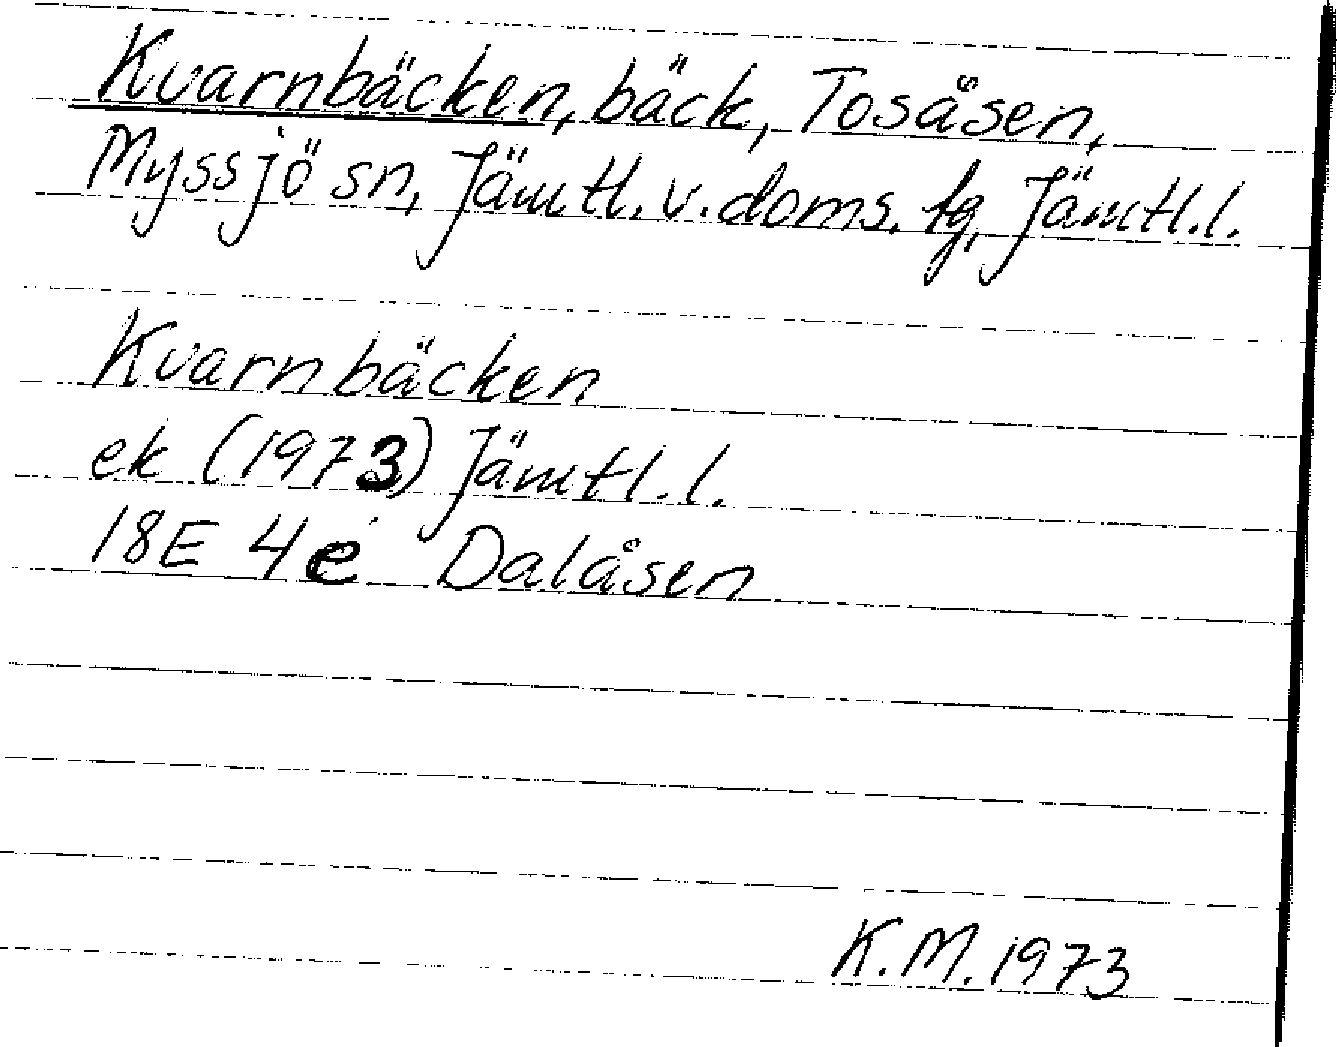 Kvarnbäcken, bäck, Tosåsen,
Myssjö sn, Jämtl. v. doms. tg, Jämtl. l.
Kvarnbäcken
ek (1973) Jämtl. l.
18E 4e Dalåsen
K.M. 1973